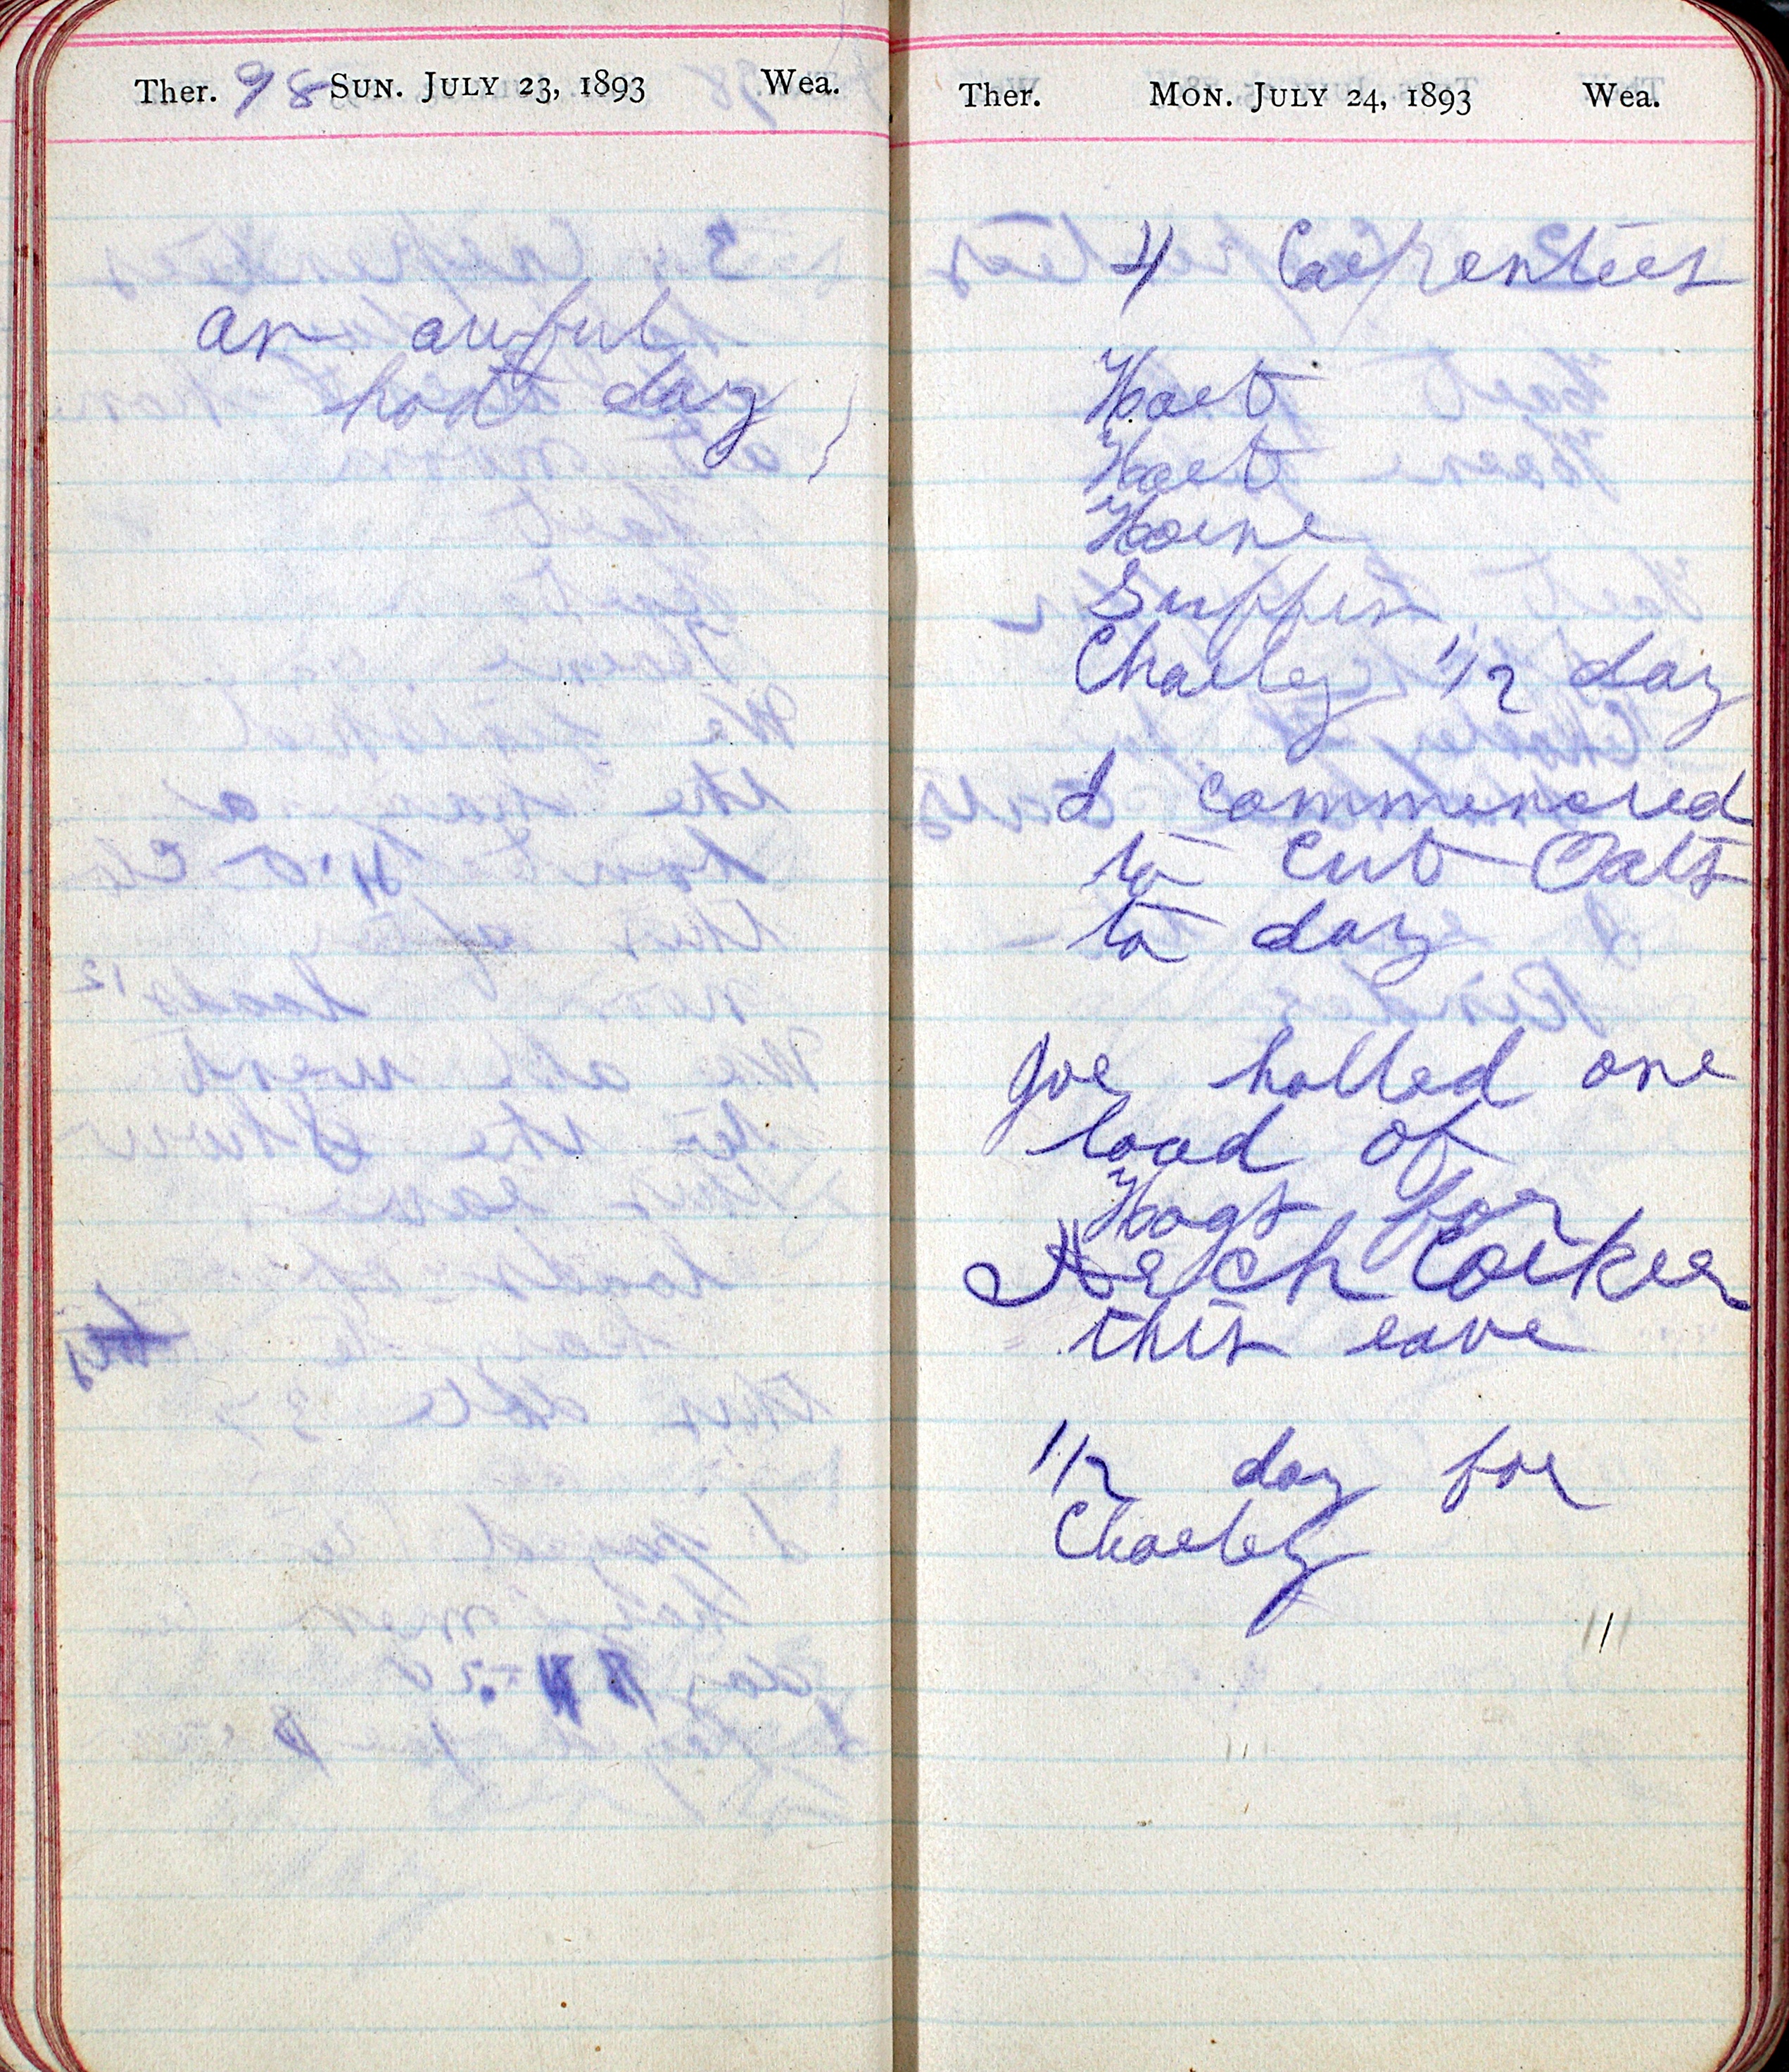 Ther. 98 SUN. JULY 23, 1893 Wea.
an awful
hot day
Ther. MON. JULY 24, 1893 Wea.
4 Carpenters
Hart
Hart
Horne
Charley 1/2 day
I commencred
to Cut Oats
to day
Joe holled one
load of
Hogs for
this eave
1/2 day for
Charley